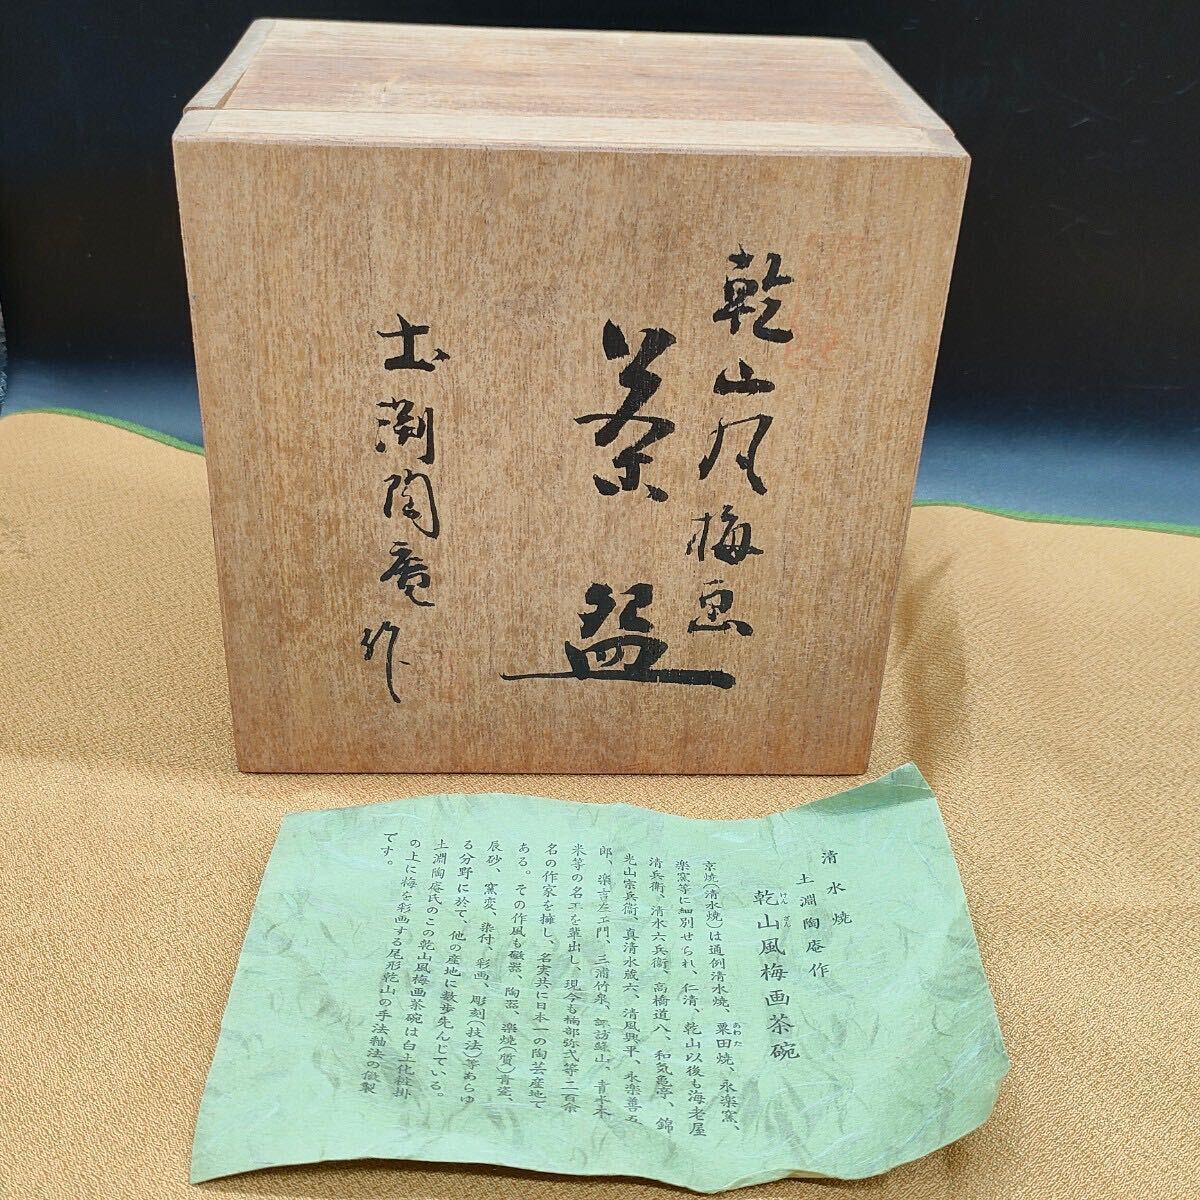 乾山風梅画
茶盌
土渕陶庵作
清水焼
土淵陶庵作
けんざん
乾山風梅画茶碗
京焼(清水焼)は通例清水焼、粟田焼、永楽窯、
あわた
楽窯等に細別せられ、仁清、乾山以後も海老屋
清兵衛、清水六兵衛、高橋道八、和気亀亭、錦
光山宗兵衛、真清水蔵六、清風興平、永楽善五
郎、楽吉左エ門、三浦竹泉、諏訪蘇山、青木木
米等の名工を輩出し、現今も楠部弥弌等二百余
名の作家を擁し、名実共に日本一の陶芸産地で
ある。その作風も磁器、陶器、楽焼(質)青瓷、
辰砂、窯変、染付、彩画、彫刻(技法)等あらゆ
る分野に於て、他の産地に数歩先んじている。
土淵陶庵氏のこの乾山風梅画茶碗は白土化粧掛
の上に梅を彩画する尾形乾山の手法釉法の倣製
です。